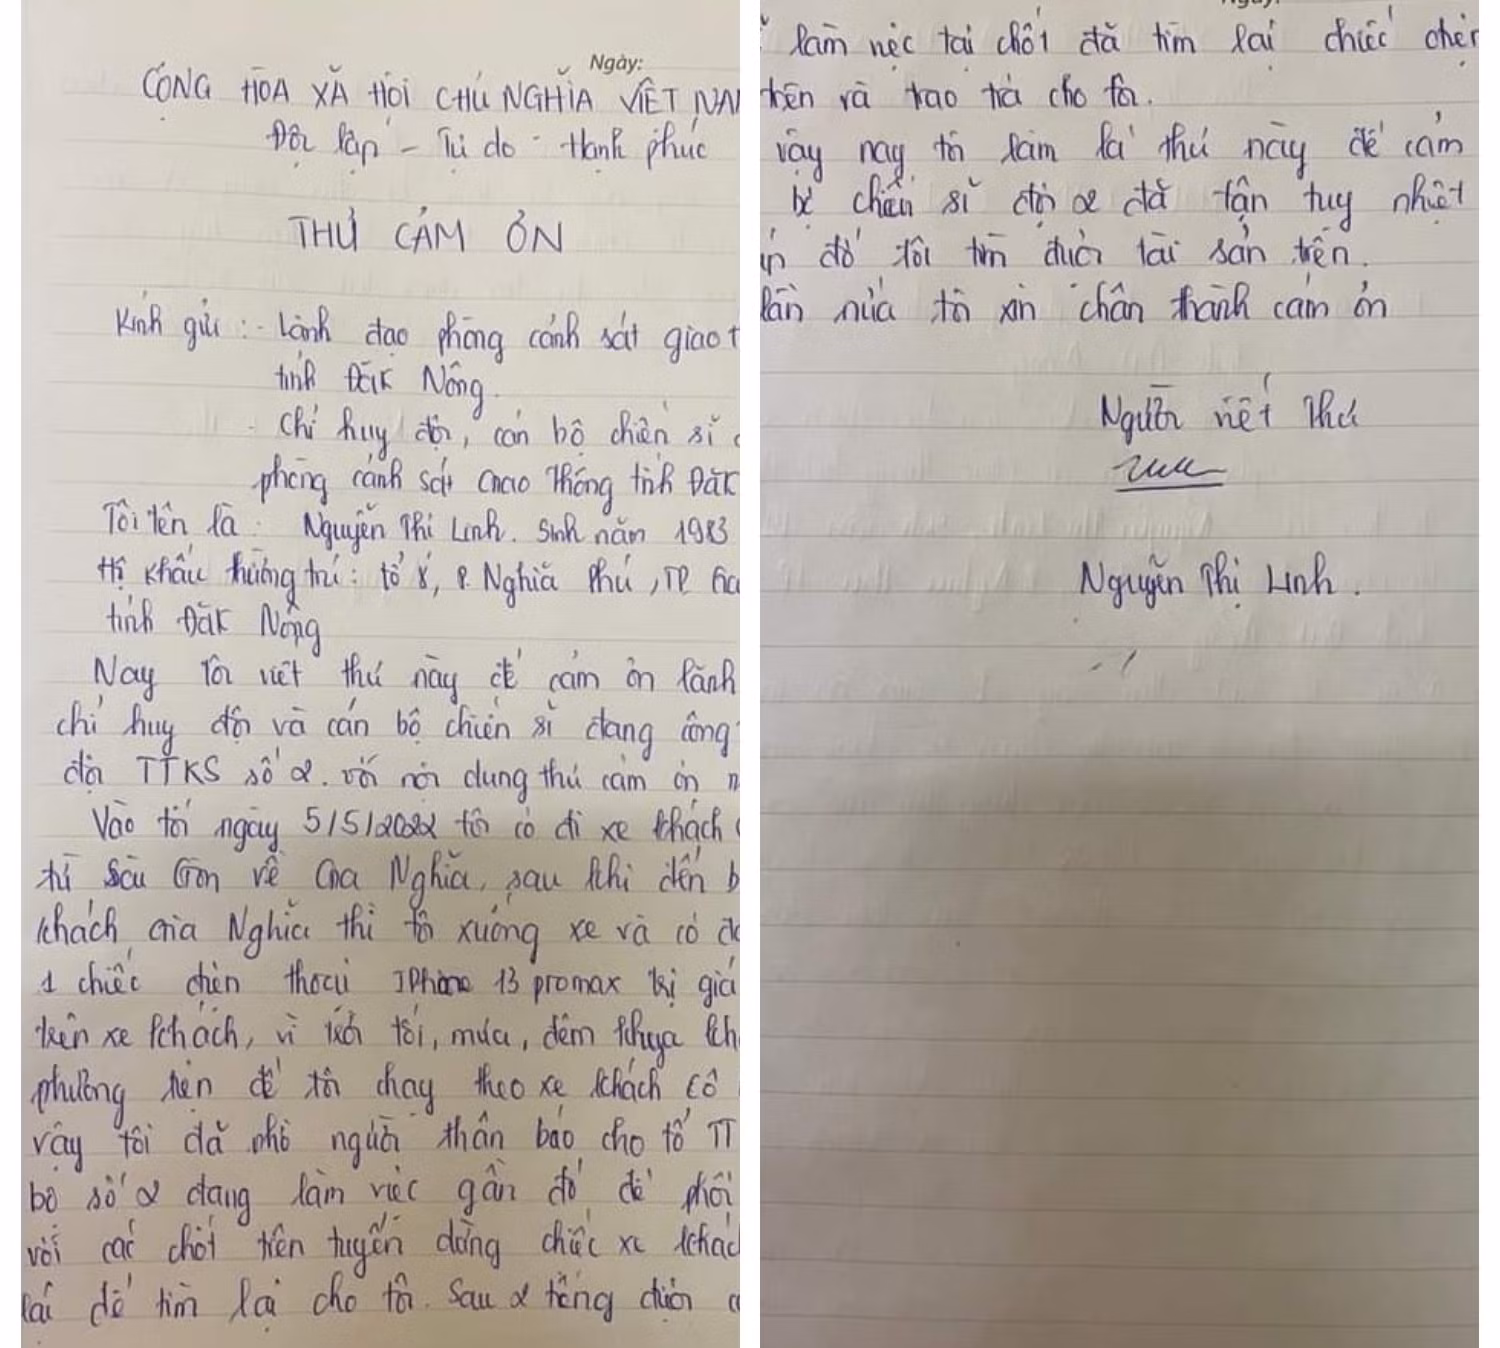 Ngày:
CỘNG HÒA XÃ HỘI CHỦ NGHĨA VIỆT NAM
Độc lập - Tự do - Hạnh phúc
THƯ CẢM ƠN
Kính gửi: - Lãnh đạo phòng cảnh sát giao t
tỉnh Đăk Nông.
- Chỉ huy đội, cán bộ chiến sĩ
phòng cảnh sát Giao thông tỉnh Đăk
Tôi tên là: Nguyễn Thị Linh. Sinh năm 1983
Hộ khẩu thường trú: tổ 8, P. Nghĩa Phú, TP Gia
tỉnh Đăk Nông
Nay tôi viết thư này để cảm ơn lãnh
chỉ huy đội và cán bộ chiến sĩ đang công
đội TTKS số 2. với nội dung thư cảm ơn n
Vào tối ngày 5/5/2022 tôi có đi xe khách
từ Sài Gòn về Gia Nghĩa, sau khi đến b
khách Gia Nghĩa thì tôi xuống xe và có để
1 chiếc điện thoại IPhone 13 promax trị giá
trên xe khách, vì trời tối, mưa, đêm khuya kh
phương tiện để tôi chạy theo xe khách cố
vậy tôi đã nhờ người thân báo cho tổ TT
bộ số 2 đang làm việc gần đó để phối
với các chốt trên tuyến dừng chiếc xe khác
lại để tìm lại cho tôi. Sau 2 tiếng được
Ngày:
làm việc tại chốt đã tìm lại chiếc điện
trên và trao trả cho tôi.
vậy nay tôi làm lá thư này để cảm
bộ chiến sĩ đội 2 đã tận tụy nhiệt
đỡ tôi tìm được tài sản trên.
lần nữa tôi xin chân thành cảm ơn
Người viết thư
Nguyễn Thị Linh.